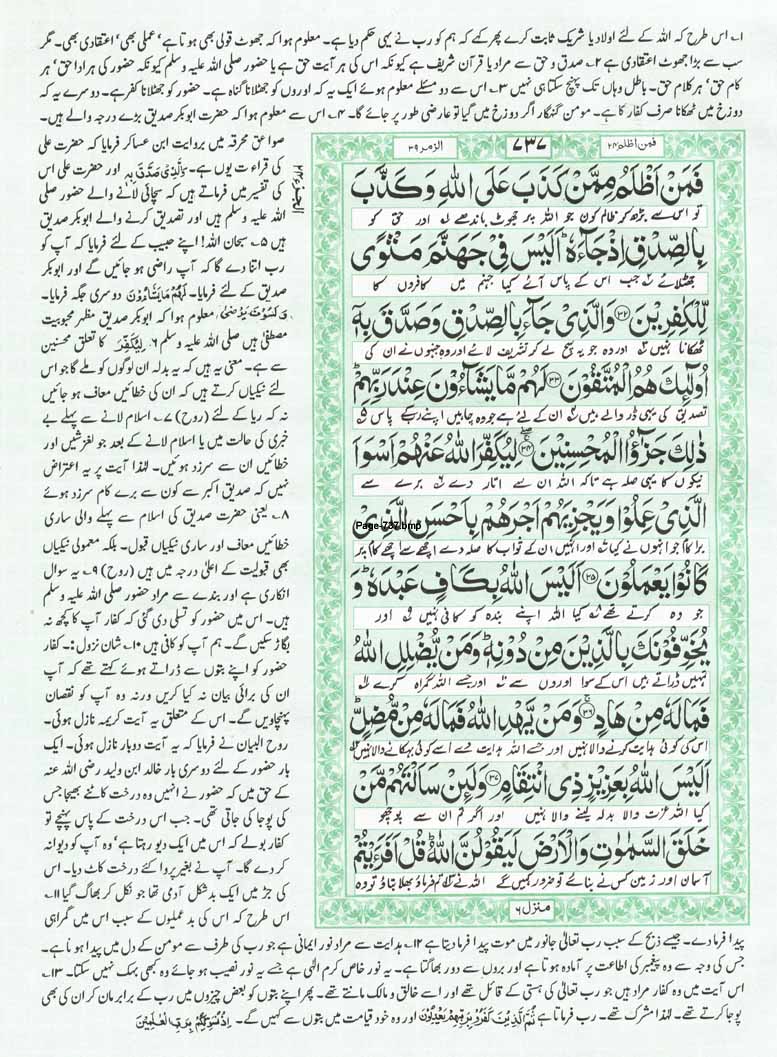 ۱۔ اس طرح کہ اللہ کے لئے اولاد یا شریک ثابت کرے پھر کہے کہ ہم کو رب نے یہی حکم دیا ہے۔ معلوم ہوا کہ جھوٹ قولی بھی ہوتا ہے' عملی بھی' اعتقادی بھی۔ مگر
سب سے بڑا جھوٹ اعتقادی ہے ۲۔ صدق و حق سے مراد یا قرآن شریف ہے کیونکہ اس کی ہر آیت حق ہے یا حضور صلی اللہ علیہ وسلم کیونکہ حضور کی ہر ادا حق' ہر
کام حق' ہر کلام حق۔ باطل وہاں تک پہنچ سکتا ہی نہیں ۳۔ اس سے دو مسئلے معلوم ہوئے ایک یہ کہ اوروں کو جھٹلانا گناہ ہے۔ حضور کو جھٹلانا کفر ہے۔ دوسرے یہ کہ
دوزخ میں ٹھکانا صرف کفار کا ہے۔ مومن گنہگار اگر دوزخ میں گیا تو عارضی طور پر جائے گا۔ ۴۔ اس سے معلوم ہوا کہ حضرت ابوبکر صدیق بڑے درجہ والے ہیں۔
فمن اظلم ۲۴
۷۳۷
الزمر ۳۹
فَمَنْ اَظْلَمُ مِمَّنْ كَذَبَ عَلَى اللّٰهِ وَكَذَّبَ
تو اس سے بڑھ کر ظالم کون جو اللہ پر جھوٹ باندھے اور حق کو
بِالصِّدْقِ اِذْ جَآءَهٗ ؕ اَلَيْسَ فِيْ جَهَنَّمَ مَثْوًى
جھٹلائے جب اس کے پاس آئے کیا جہنم میں کافروں کا
لِّلْكٰفِرِيْنَ ۳۲ وَالَّذِيْ جَآءَ بِالصِّدْقِ وَصَدَّقَ بِهٖٓ
ٹھکانا نہیں اور وہ جو یہ سچ لے کر تشریف لائے اور وہ جنہوں نے ان کی
اُولٰٓئِكَ هُمُ الْمُتَّقُوْنَ ۳۳ لَهُمْ مَّا يَشَآءُوْنَ عِنْدَ رَبِّهِمْ ؕ
تصدیق کی یہی ڈر والے ہیں ان کے لئے ہے جو وہ چاہیں اپنے رب کے پاس
ذٰلِكَ جَزٰٓؤُا الْمُحْسِنِيْنَ ۳۴ لِيُكَفِّرَ اللّٰهُ عَنْهُمْ اَسْوَاَ
نیکوں کا یہی صلہ ہے تاکہ اللہ ان سے اتار دے برے سے
الَّذِيْ عَمِلُوْا وَيَجْزِيَهُمْ اَجْرَهُمْ بِاَحْسَنِ الَّذِيْ
Page-737.bmp
برا کام جو انہوں نے کیا اور انہیں ان کے ثواب کا صلہ دے اچھے سے اچھے کام پر
كَانُوْا يَعْمَلُوْنَ ۳۵ اَلَيْسَ اللّٰهُ بِكَافٍ عَبْدَهٗ ؕ وَ
جو وہ کرتے تھے کیا اللہ اپنے بندہ کو کافی نہیں اور
يُخَوِّفُوْنَكَ بِالَّذِيْنَ مِنْ دُوْنِهٖ ؕ وَمَنْ يُّضْلِلِ اللّٰهُ
تمہیں ڈراتے ہیں اس کے سوا اوروں سے اور جسے اللہ گمراہ کرے
فَمَا لَهٗ مِنْ هَادٍ ۳۶ وَمَنْ يَّهْدِ اللّٰهُ فَمَا لَهٗ مِنْ مُّضِلٍّ ؕ
اس کی کوئی ہدایت کرنے والا نہیں اور جسے اللہ ہدایت دے اسے کوئی بہکانے والا نہیں
اَلَيْسَ اللّٰهُ بِعَزِيْزٍ ذِي انْتِقَامٍ ۳۷ وَلَئِنْ سَاَلْتَهُمْ مَّنْ
کیا اللہ عزت والا بدلہ لینے والا نہیں اور اگر تم ان سے پوچھو
خَلَقَ السَّمٰوٰتِ وَالْاَرْضَ لَيَقُوْلُنَّ اللّٰهُ ؕ قُلْ اَفَرَءَيْتُمْ
آسمان اور زمین کس نے بنائے تو ضرور کہیں گے اللہ نے تم فرماؤ بھلا بتاؤ تو وہ
منزل ۶
الجزء ۲۴
صواعق محرقہ میں بروایت ابن عساکر فرمایا کہ حضرت علی
کی قراءت یوں ہے۔ وَالَّذِیْ صَدَّقَ بِهٖ اور حضرت علی اس
کی تفسیر میں فرماتے ہیں کہ سچائی لانے والے حضور صلی
اللہ علیہ وسلم ہیں اور تصدیق کرنے والے ابوبکر صدیق
ہیں ۵۔ سبحان اللہ! اپنے حبیب کے لئے فرمایا کہ آپ کو
رب اتنا دے گا کہ آپ راضی ہو جائیں گے اور ابوبکر
صدیق کے لئے فرمایا۔ لَهُمْ مَّا يَشَآءُوْنَ دوسری جگہ فرمایا۔
وَلَسَوْفَ يَرْضٰى معلوم ہوا کہ ابوبکر صدیق مظہر محبوبیت
مصطفٰی ہیں صلی اللہ علیہ وسلم ۶۔ لِيُكَفِّرَ کا تعلق محسنین
سے ہے۔ معنی یہ ہیں کہ یہ بدلہ ان لوگوں کو ملے گا جو اس
لئے نیکیاں کرتے ہیں کہ ان کی خطائیں معاف ہو جائیں
نہ کہ ریا کے لئے (روح) ۷۔ اسلام لانے سے پہلے بے
خبری کی حالت میں یا اسلام لانے کے بعد جو لغزشیں اور
خطائیں ان سے سرزد ہوئیں۔ لہٰذا آیت پر یہ اعتراض
نہیں کہ صدیق اکبر سے کون سے برے کام سرزد ہوئے
۸۔ یعنی حضرت صدیق کی اسلام سے پہلے والی ساری
خطائیں معاف اور ساری نیکیاں قبول۔ بلکہ معمولی نیکیاں
بھی قبولیت کے اعلیٰ درجہ میں ہیں (روح) ۹۔ یہ سوال
انکاری ہے اور بندے سے مراد حضور صلی اللہ علیہ وسلم
ہیں۔ اس میں حضور کو تسلی دی گئی کہ کفار آپ کا کچھ نہ
بگاڑ سکیں گے۔ ہم آپ کو کافی ہیں ۱۰۔ شان نزول :۔ کفار
حضور کو اپنے بتوں سے ڈراتے ہوئے کہتے تھے کہ آپ
ان کی برائی بیان نہ کیا کریں ورنہ وہ آپ کو نقصان
پہنچاویں گے۔ اس کے متعلق یہ آیت کریمہ نازل ہوئی۔
روح البیان نے فرمایا کہ یہ آیت دوبار نازل ہوئی۔ ایک
بار حضور کے لئے دوسری بار خالد ابن ولید رضی اللہ عنہ
کے حق میں کہ حضور نے انہیں وہ درخت کاٹنے بھیجا جس
کی پوجا کی جاتی تھی۔ جب اس درخت کے پاس پہنچے تو
کفار بولے کہ اس میں ایک دیو رہتا ہے' وہ آپ کو دیوانہ
کر دے گا۔ آپ نے بغیر پروا کئے درخت کاٹ دیا۔ اس
کی جڑ میں ایک بدشکل آدمی تھا جو نکل کر بھاگ گیا ۱۱۔
اس طرح کہ اس کی بدعملیوں کے سبب اس میں گمراہی
پیدا فرما دے۔ جیسے ذبح کے سبب رب تعالیٰ جانور میں موت پیدا فرما دیتا ہے ۱۲۔ ہدایت سے مراد نور ایمانی ہے جو رب کی طرف سے مومن کے دل میں پیدا ہوتا ہے۔
جس کی وجہ سے وہ پیغمبر کی اطاعت پر آمادہ ہوتا ہے اور بروں سے دور بھاگتا ہے۔ یہ نور خاص کرم الٰہی ہے جسے یہ نور نصیب ہو جائے وہ کبھی بہک نہیں سکتا۔ ۱۳۔
اس آیت میں وہ کفار مراد ہیں جو رب تعالیٰ کی ہستی کے قائل تھے اور اسے خالق و مالک مانتے تھے۔ پھر اپنے بتوں کو بعض چیزوں میں رب کے برابر مان کر ان کی بھی
پوجا کرتے تھے۔ لہٰذا مشرک تھے۔ رب فرماتا ہے ثُمَّ الَّذِيْنَ كَفَرُوْا بِرَبِّهِمْ يَعْدِلُوْنَ اور وہ خود قیامت میں بتوں سے کہیں گے۔ اِذْ نُسَوِّيْكُمْ بِرَبِّ الْعٰلَمِيْنَ